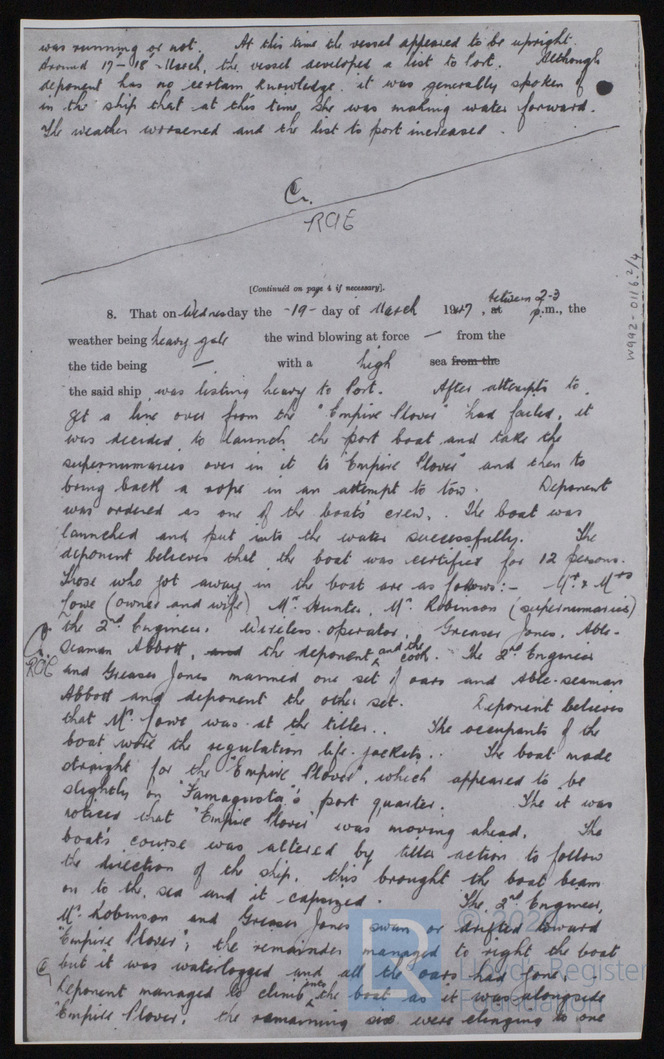 was running or not. At this time the vessel appeared to be upright.
Around 17-18 March, the vessel developed a list to Port. Although
deponent has no certain knowledge, it was generally spoken of
in the ship that at this time she was making water forward.
The weather worsened and the list to port increased.
RAE
[Continued on page 4 if necessary].
8. That on Wednesday the -19- day of March 1947, at between 2-3 p.m., the
weather being heavy gale the wind blowing at force — from the
the tide being — with a high sea from the
the said ship was listing heavy to Port. After attempts to
get a line over from the "Empire Plover" had failed, it
was decided to launch the port boat and take the
supernumaries over in it to "Empire Plover" and then to
bring back a rope in an attempt to tow. Deponent
was ordered as one of the boat's crew. The boat was
launched and put into the water successfully. The
deponent believes that the boat was certified for 12 persons.
Those who got away in the boat are as follows:- Mr & Mrs
Lowe (owner and wife) Mr. Hunter, Mr. Robinson (supernumaries)
the 2nd Engineer, Wireless-operator, Greaser Jones, Able-
Seaman Abbott, and the deponent and the cook. The 2nd Engineer
RAE
and Greaser Jones manned one set of oars and Able-seaman
Abbott and deponent the other set. Deponent believes
that Mr. Lowe was at the tiller. The occupants of the
boat wore the regulation life-jackets. The boat made
straight for the "Empire Plover", which appeared to be
slightly on "Famagusta"'s port quarter. The it was
noticed that "Empire Plover" was moving ahead. The
boat's course was altered by tiller action to follow
the direction of the ship, this brought the boat beam
on to the sea and it capsized. The 2nd Engineer,
Mr. Robinson and Greaser Jones swam or drifted toward
"Empire Plover", the remainder managed to right the boat
but it was waterlogged and all the oars had gone.
Deponent managed to climb into the boat as it was alongside
"Empire Plover", the remaining six were clinging to one
W992-0116 2/4
© 202
Lloyd's Register
Foundation
LR